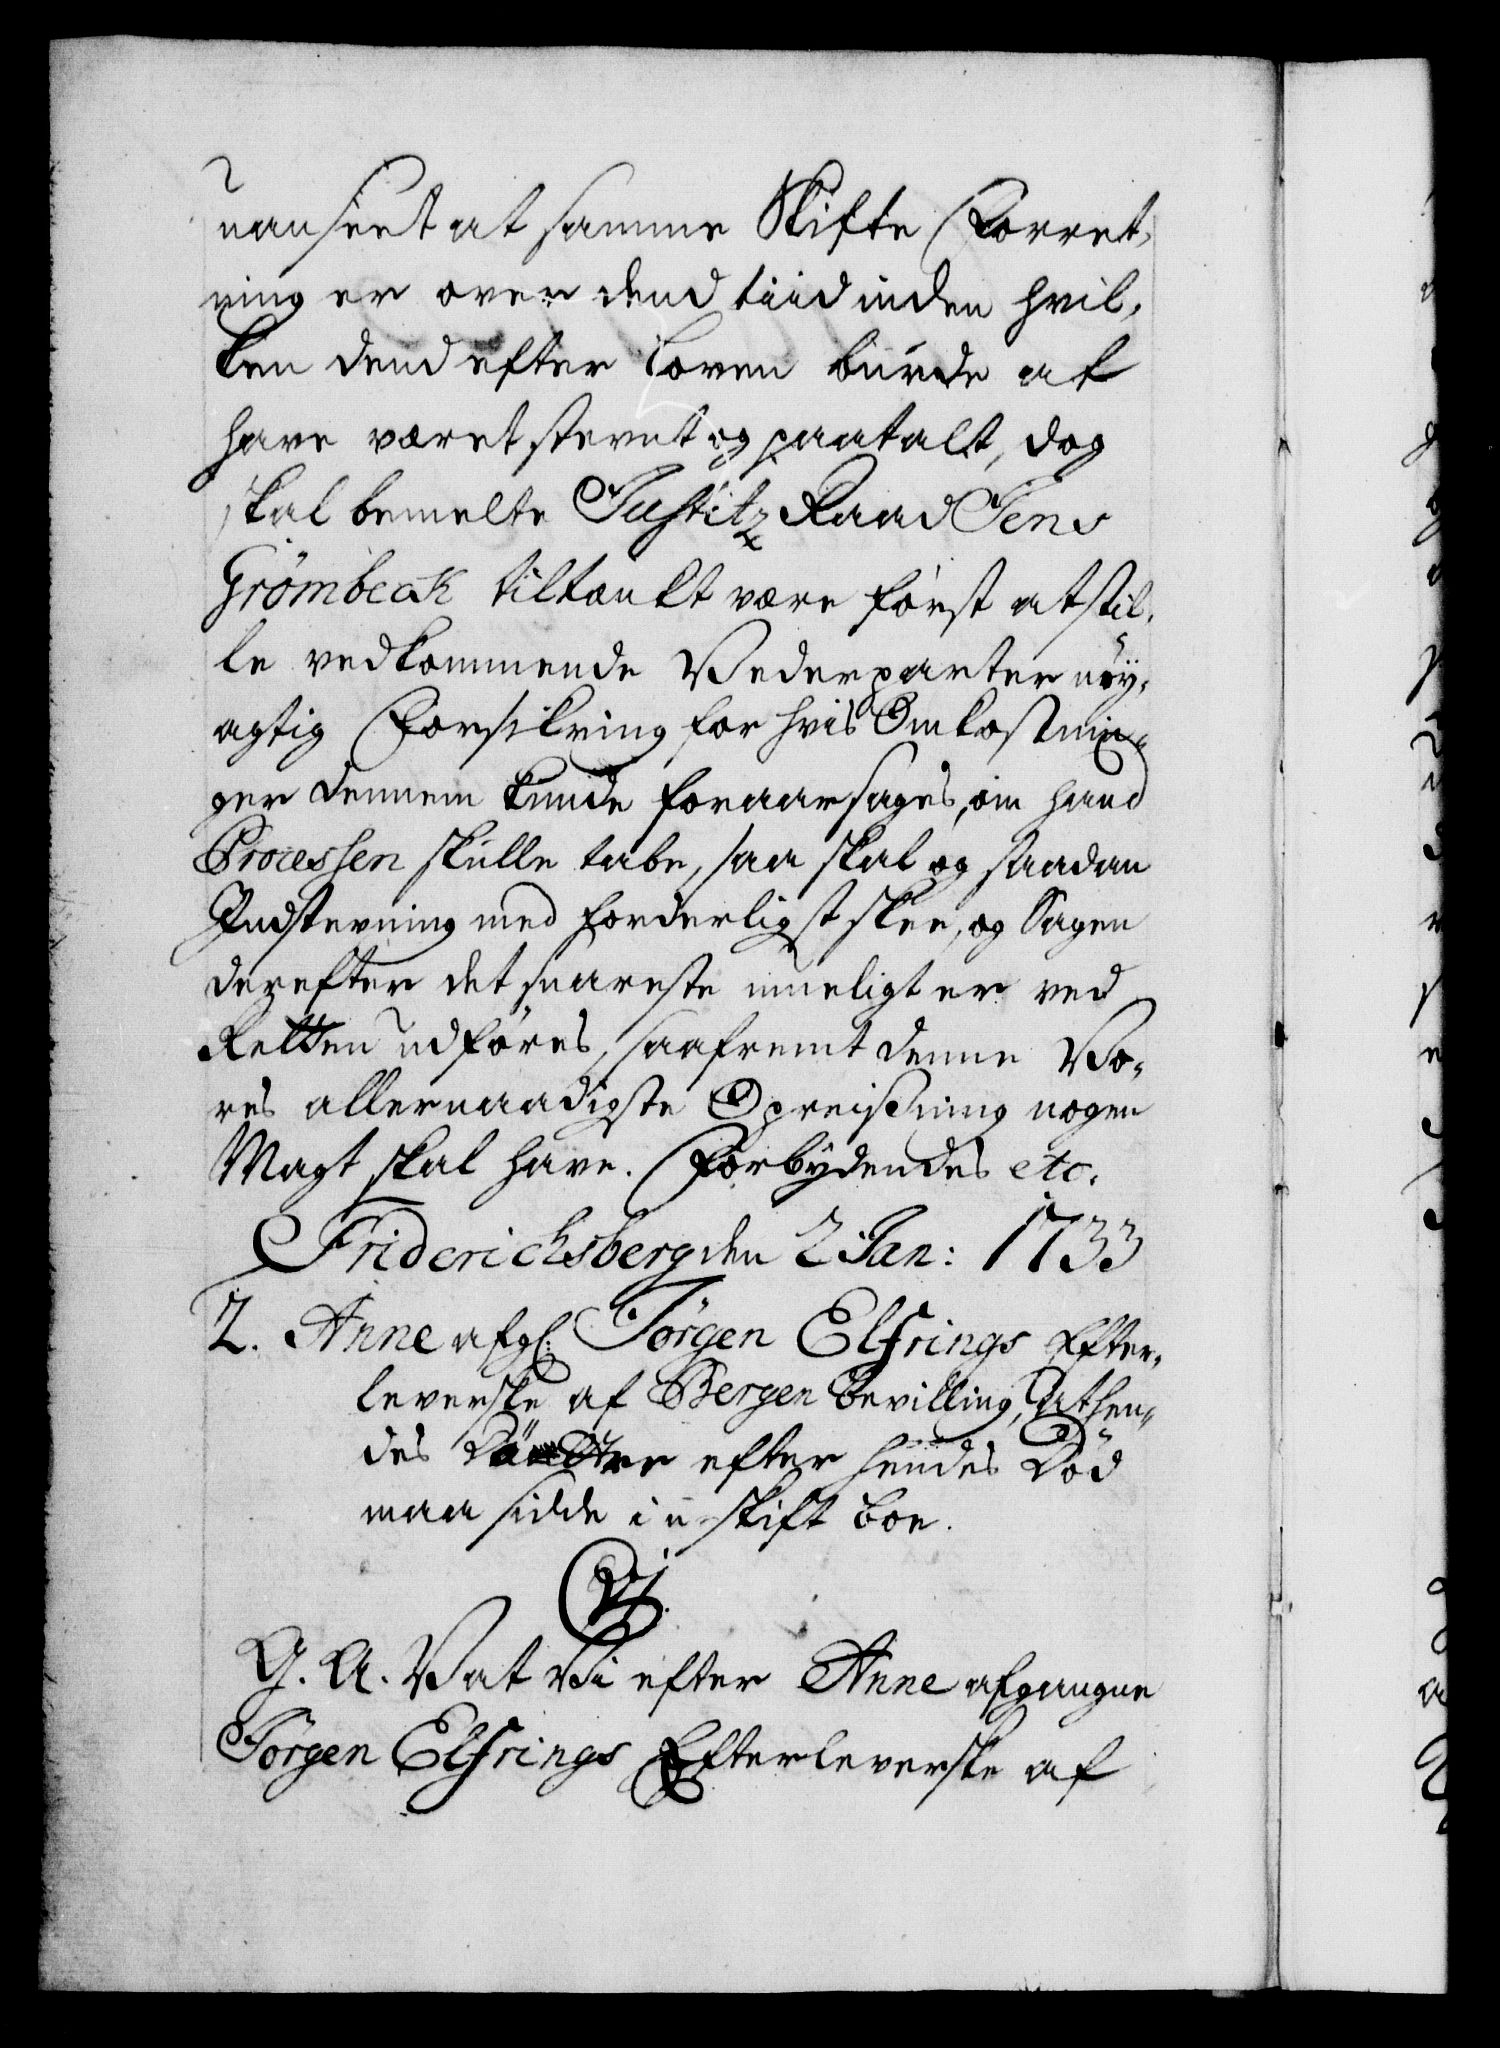 uanseet at samme Skifte Forret-
ning er over dend tiid inden hvil-
ken dend efter Loven burde at
have været stevnt og paatalt, dog
skal bemelte Justitz Raad Jens
Grömbeck tiltænkt være först at stil-
le vedkommende Vederparter nöy-
agtig Forsikring for hvis Omkostnin-
ger dennem kunde foraarsages, om hand
Processen skulle tabe, saa skal og saadan
Indstevning med forderligst skee, og Sagen
derefter det snareste mueligt er ved
Retten udföres, saafremt denne Vo-
res allernaadigste Opreisning nogen
Magt skal have. Forbydendes etc.
Friderichsberg den 2 Jan: 1733
2. Anne afg: Jörgen Elfrings Efter-
leverske af Bergen bevilling, at hen-
des efter hendes Död
maa sidde i u-skift boe.
C. 6.
G. A. V at Vi efter Anne afgangne
Jörgen Elfrings Efterleverske af